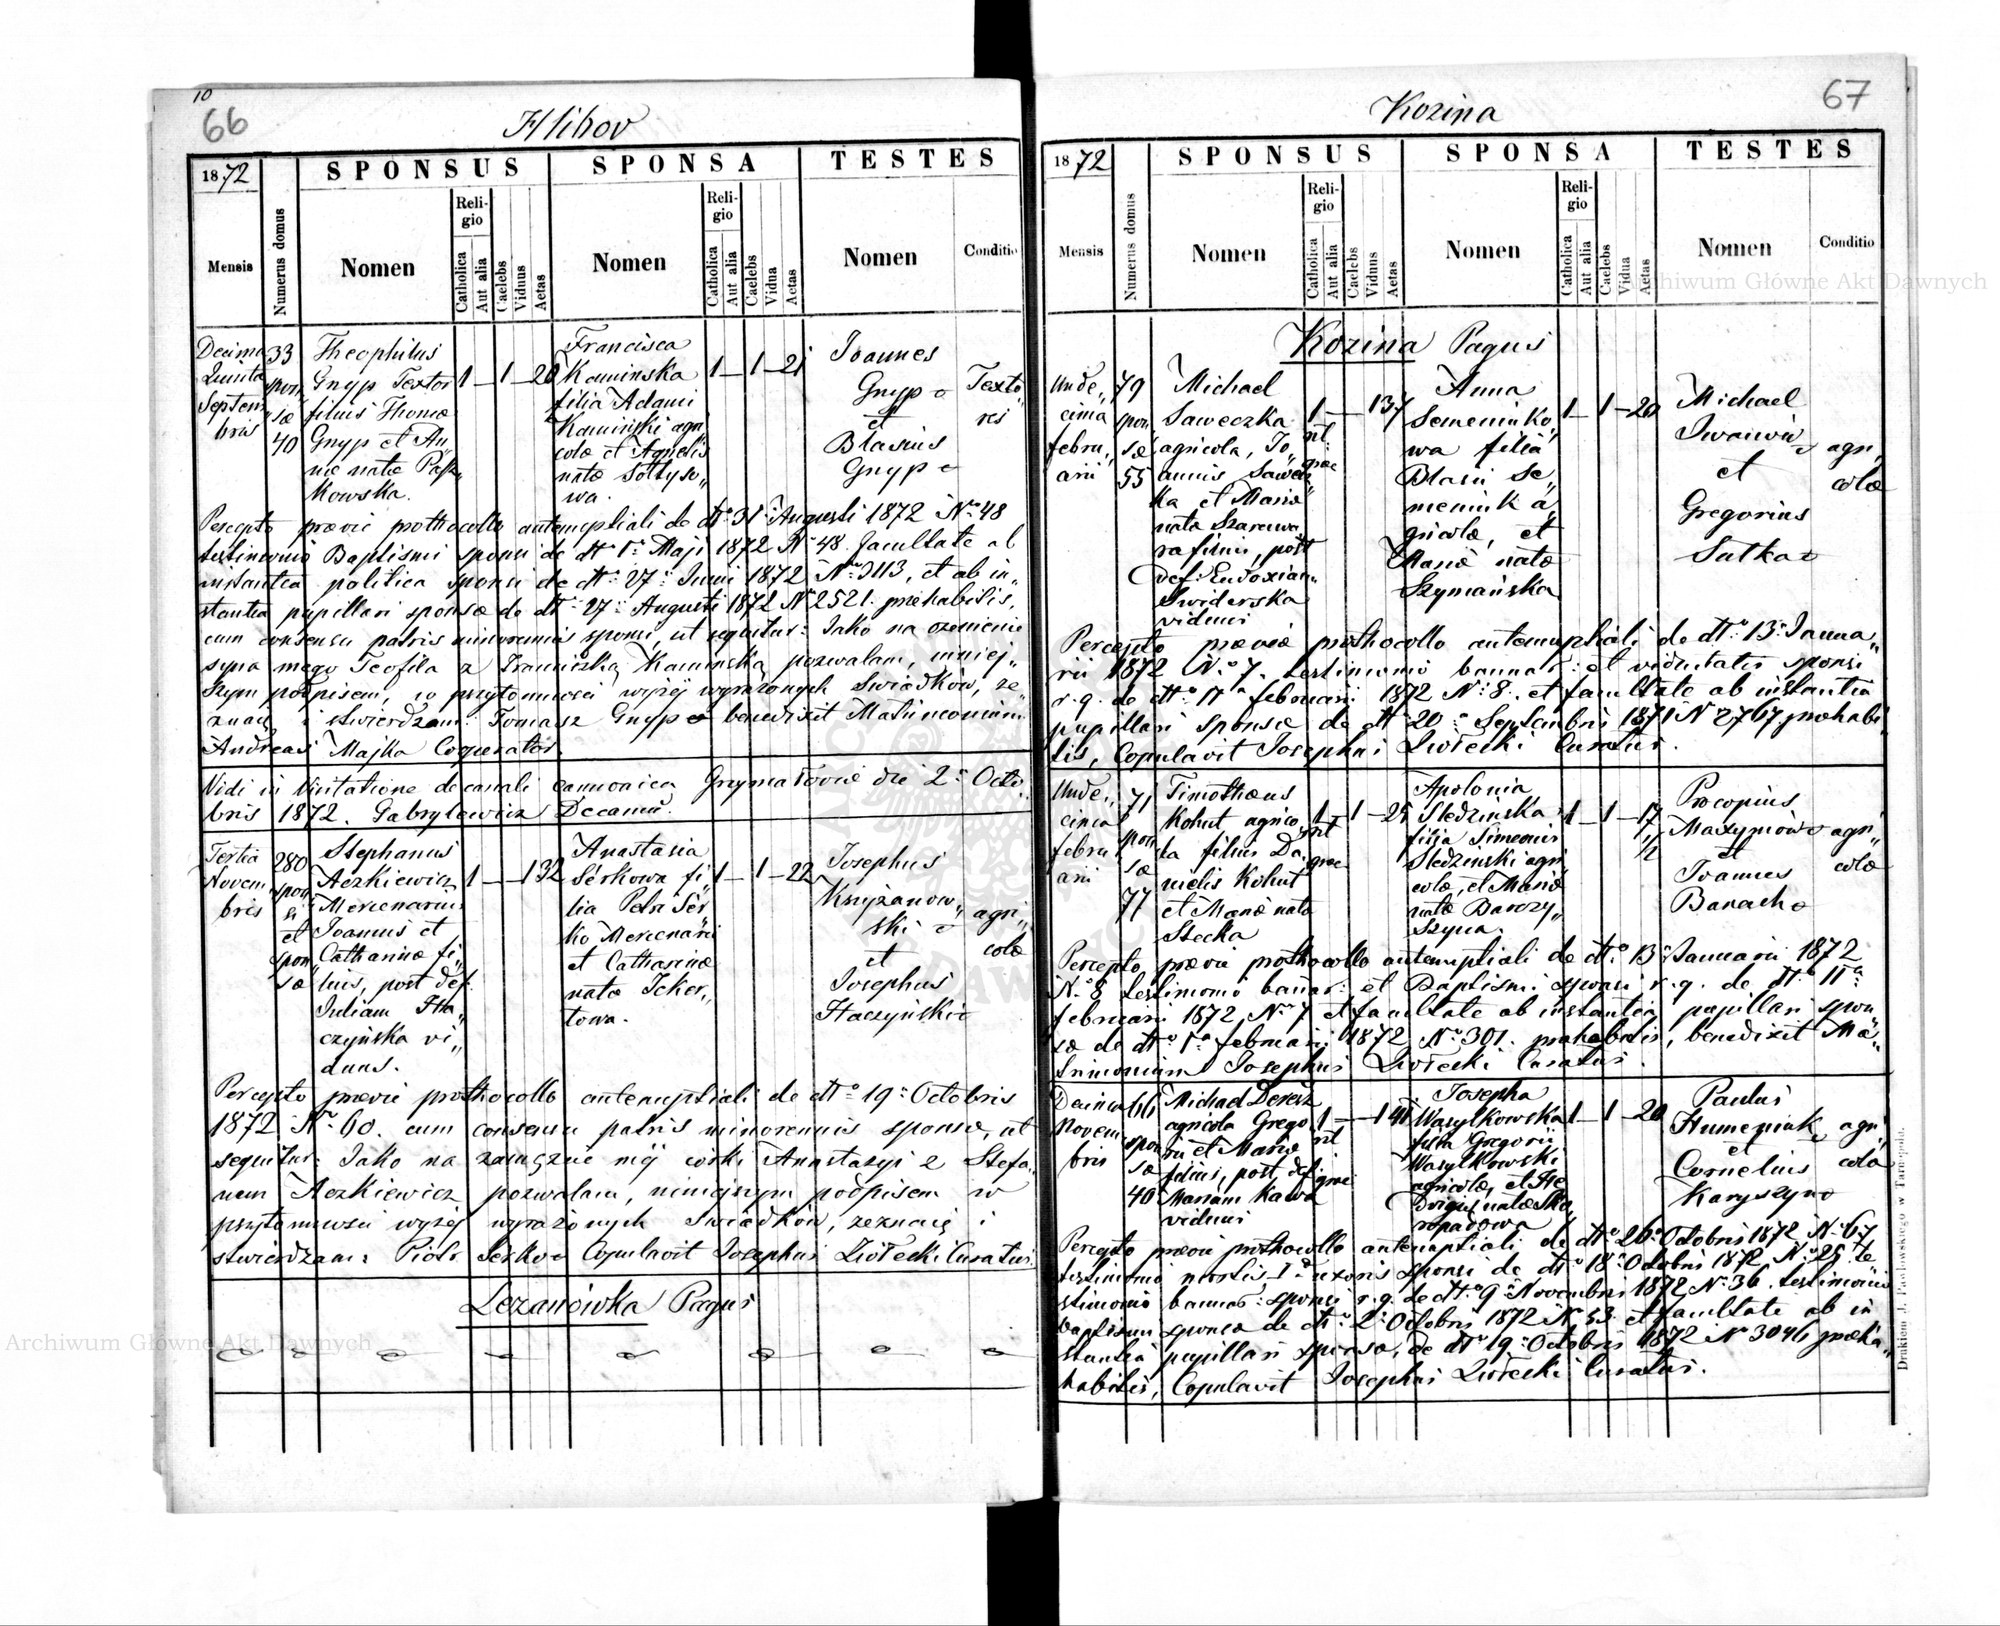 10
66
Hlibov
1872
SPONSUS
SPONSA
TESTES
Mensis
Numerus domus
Nomen
Religio
Catholica
Aut alia
Caelebs
Viduus
Aetas
Nomen
Religio
Catholica
Aut alia
Caelebs
Vidua
Aetas
Nomen
Conditio
Decima
Quinta
Septem
bris
33
spon
sæ
40
Theophilus
Gnyp Textor
filius Thomæ
Gnyp et An
næ natæ Pasz
kowska.
1 — 1 — 20
Francisca
Kaminska
filia Adami
Kaminski agri
colæ et Agnetis
natæ Soltyso„
wa.
1 — 1 — 21
Joannes
Gnyp
et
Blasius
Gnyp
Texto„
res
Percepto prævie prothocollo antenuptiali de dto 31 Augusti 1872 No 48
testimonio Baptismi sponsi de dto 1 Maji 1872 No 48. facultate ab
instantia politica sponsi de dto 27 Junii 1872 No 3113, et ab in„
stantia pupillari sponsæ de dto 27 Augusti 1872 No 2521. præhabitis,
cum consensu patris minorennis sponsi, ut sequitur: Jako na ozenienie
syna mego Teofila z Franciszką Kaminską pozwalam, niniej„
szym podpisem, w przytomności wyżej wyrażonych Swiadków, ze„
znaję i stwierdzam: Tomasz Gnyp benedixit Matrimonium
Andreas Majka Cooperator.
Vidi in Visitatione decanali canonica Grymałoviæ die 2 Octo„
bris 1872. Gabrylewicz Decanus.
Tertia
Novem
bris
280
spon
si
et
spon„
sæ
Stephanus
Aczkiewicz
Mercenarius
Joannis et
Catharinæ fi„
lius, post def.
Juliam Ha
czyńska vi„
duus.
1 — — 1 32
Anastasia
Serkowa fi„
lia Petri Ser
ko Mercenarii
et Catharinæ
natæ Icker„
towa.
1 — 1 — 22
Josephus
Krzyżanow„
ski
et
Josephus
Haczyński
agri„
colæ
Percepto prævie prothocollo antenuptiali de dto 19 Octobris
1872 No 60. cum consensu patris minorennis sponsæ, ut
sequitur: Jako na zamęzcie méj córki Anastazyi z Stefa„
nem Aczkiewicz pozwalam, niniejszym podpisem w
przytomności wyżej wyrażonych Swiadków, zeznaję i
stwierdzam: Piotr Serko Copulavit Josephus Ziółecki Curatus.
Lezanówka Pagus
67
Kozina
1872
SPONSUS
SPONSA
TESTES
Mensis
Numerus domus
Nomen
Religio
Catholica
Aut alia
Caelebs
Viduus
Aetas
Nomen
Religio
Catholica
Aut alia
Caelebs
Vidua
Aetas
Nomen
Conditio
Kozina Pagus
Unde„
cima
febru„
arii
79
spon
sæ
55
Michael
Saweczka
agricola, Jo„
annis Sawecz
ka et Mariæ
nata
filius, post
def. Eudoxiam
Swiderska
viduus
1 — — 1 37
rit.
græc
Anna
Semeniuko„
wa filia
Blasii Se„
meniuk a„
gricolæ, et
Mariæ natæ
Szymańska
1 — 1 — 20
Michael
Iwaniw
et
Gregorius
Sutka
agri„
colæ
Percepto prævie prothocollo antenuptiali de dto 13 Janua„
rii 1872 No 7. testimonio bannor: et viduitatis sponsi
r. g. de dto 11 februarii 1872 No 8. et facultate ab instantia
pupillari sponsæ de dto 20 Septembris 1871 No 2767 præhabi„
tis, Copulavit Josephus Ziółecki Curatus.
Unde„
cima
febru„
arii
71
spon
sæ
77
Timotheus
Kohut agrico„
la filius Da„
nielis Kohut
et Mariæ nata
Stecka
1 — 1 — 25
rit
græc
Apolonia
Sledzinska
filia Simeonis
Sledzinski agri
colæ, et Mariæ
natæ Barczy„
szyna.
1 — 1 — 17
1/2
Procopius
Maxymów
et
Joannes
Banach
agri„
colæ
Percepto prævie prothocollo antenuptiali de dto 13 Januarii 1872
No 8 testimonio bannor: et Baptismi sponsi r. g. de dto 11
februarii 1872 No 7 et facultate ab instantia pupillari spon
sæ de dto 1 februarii 1872 No 301. præhabitis, benedixit Ma„
trimonium Josephus Ziółecki Curatus.
Decima
Novem
bris
66
spon
sæ
40
Michael Deresz
agricola Grego
rii et Mariæ
filius, post def.
Mariam Kawa
viduus
1 — — 1 41
rit
græc
Josepha
Wasylkowska
filia Gregorii
Wasylkowski
agricolæ, et He
dvigis natæ Sko„
ropadowa
1 — 1 — 20
Paulus
Humeniuk
et
Cornelius
Karyszyn
agri„
colæ
Percepto prævie prothocollo antenuptiali de dto 26 Octobris 1872 No 67
testimonio mortis I uxoris sponsi de dto 18 Octobris 1872 No 25 te
stimonio bannor: sponsi r. g. de dto 9 Novembris 1872 No 36. testimonio
baptismi sponsæ de dto 2 Octobris 1872 No 53 et facultate ab in
stantia pupillari sponsæ, de dto 19 Octobris 1872 No 3046 præha„
habitis, Copulavit Josephus Ziółecki Curatus.
Drukiem J. Pawłowskiego w Tarnopolu.
Archiwum Główne Akt Dawnych
Archiwum Główne Akt Dawnych